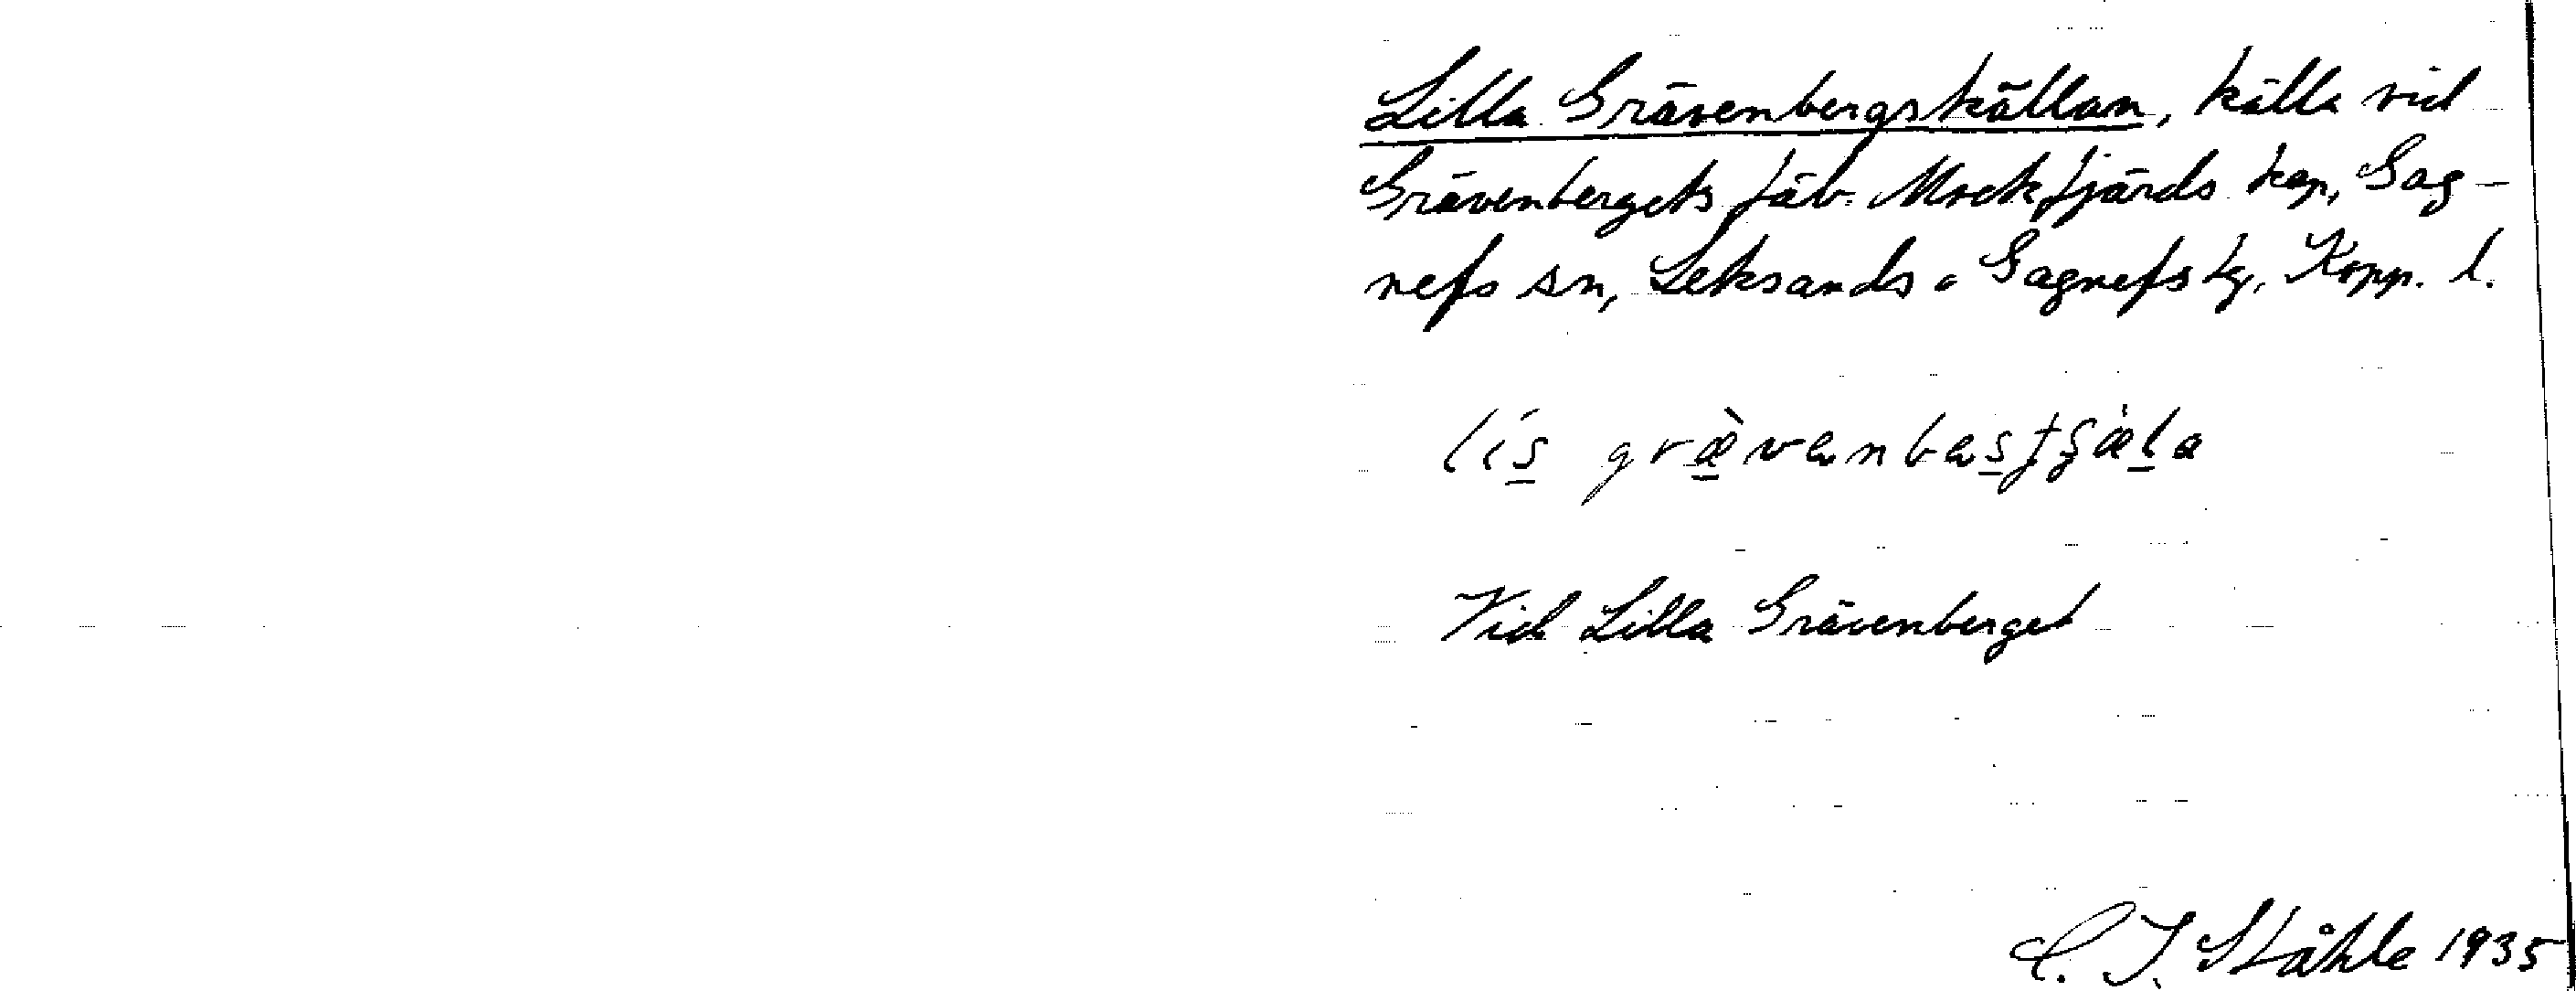 Lilla Grävenbergskällan, källa vid
Grävenbergets fäb. Mockfjärds kap, Gag-
nefs sn, Leksands o Gagnefs tg, Kopp. l.
lís græ̀venbestʃæ̀la
Vid Lilla Grävenberget
C. I. Ståhle 1935